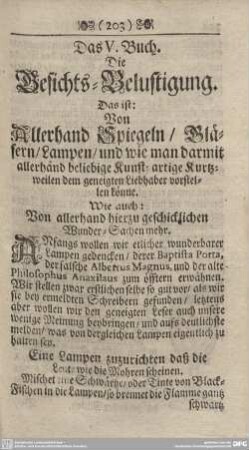 (203)
Das V. Buch.
Die
Gesichts-Belustigung.
Das ist:
Von
Allerhand Spiegeln / Glä-
sern / Lampen / und wie man darmit
allerhand beliebige Kunst-artige Kurtz-
weilen dem geneigten Liebhaber vorstel-
len könne.
Wie auch:
Von allerhand hierzu geschicklichen
Wunder-Sachen mehr.
ANfangs wollen wir etlicher wunderbarer
Lampen gedencken / derer Baptista Porta,
der falsche Albertus Magnus, und der alte
Philosophus Anaxilaus zum öfftern erwähnen.
Wir stellen zwar erstlichen selbe so gut vor / als wir
sie bey ermeldten Schreibern gefunden / letztens
aber wollen wir den geneigten Leser auch unsere
wenige Meinung beybringen / und aufs deutlichste
melden / was von dergleichen Lampen eigentlich zu
halten sey.
Eine Lampen zuzurichten daß die
wie die Mohren scheinen.
Mischet Schwärtze / oder Tinte von Black-
Fischen in die Lampen / so brennet die Flamme gantz
schwartz